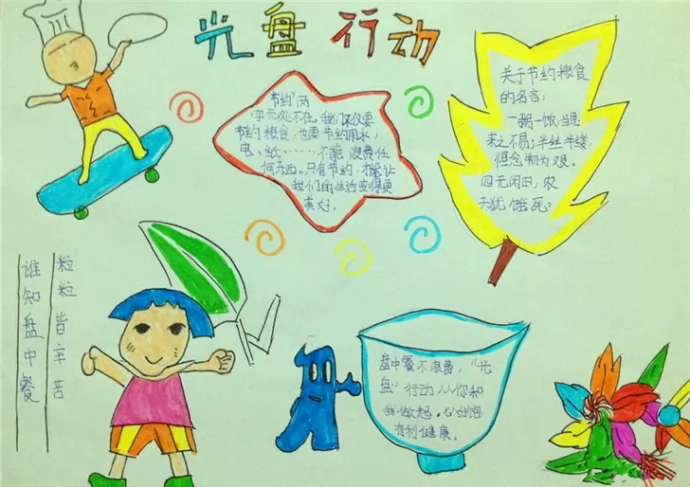 光盘行动
节约"两
字无处不在。我们不仅要
节约粮食，也要节约用水，
电、纸……不能浪费任
何东西。只有节约，才能让
我们的生活变得更
美好。
关于节约粮食
的名言：
一粥一饭，当思
来之不易；半丝半缕，
恒念物力为艰。
四无闲田，农
夫犹饿死？
谁知盘中餐
粒粒皆辛苦
盘中餐不浪费，"光
盘"行动从你和
我做起。
有利健康。